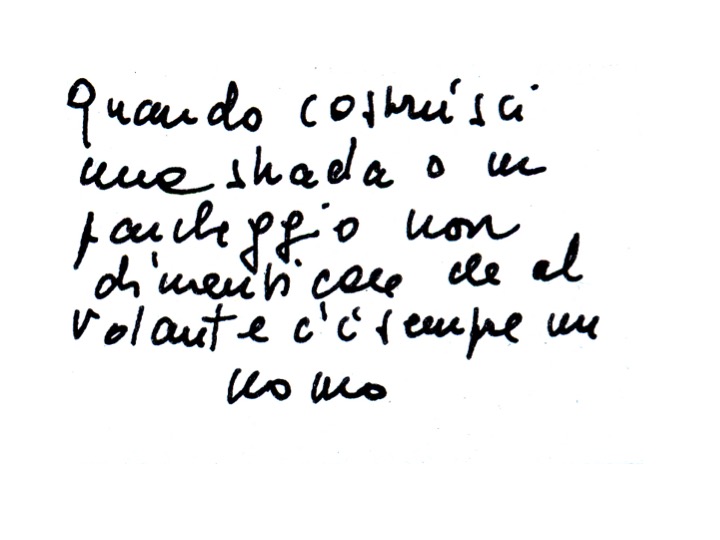 Quando costruisci
una strada o un
parcheggio non
dimenticare che al
volante c'è sempre un
uomo